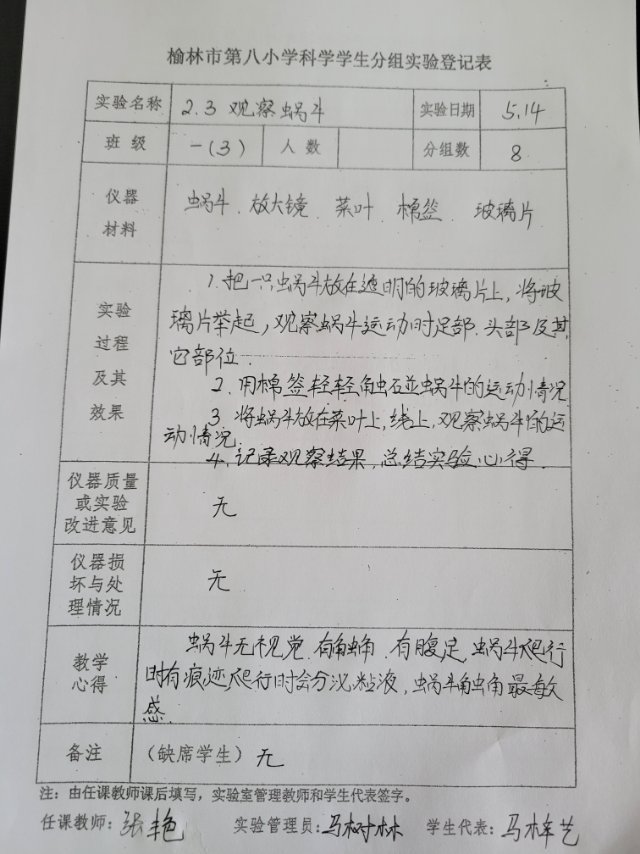 榆林市第八小学科学学生分组实验登记表
实验名称 2.3 观察蜗斗 实验日期 5.14
班 级 一(3) 人 数 分组数 8
仪器
材料
蜗斗、放大镜 菜叶 棉签、玻璃片
实验
过程
及其
效果
1.把一只蜗斗放在透明的玻璃片上,将玻
璃片举起,观察蜗斗运动时足部、头部及其
它部位
2、用棉签轻轻触碰蜗斗的运动情况
3、将蜗斗放在菜叶上,线上,观察蜗斗的运
动情况.
4、记录观察结果,总结实验心得.
仪器质量
或实验
改进意见
无
仪器损
坏与处
理情况
无
教学
心得
蜗斗无视觉、有触角、有腹足,蜗斗爬行
时有痕迹爬行时会分泌粘液,蜗斗触角最敏
感.
备注 (缺席学生) 无
注:由任课教师课后填写,实验室管理教师和学生代表签字。
任课教师:张艳 实验管理员:马树林 学生代表:马梓艺